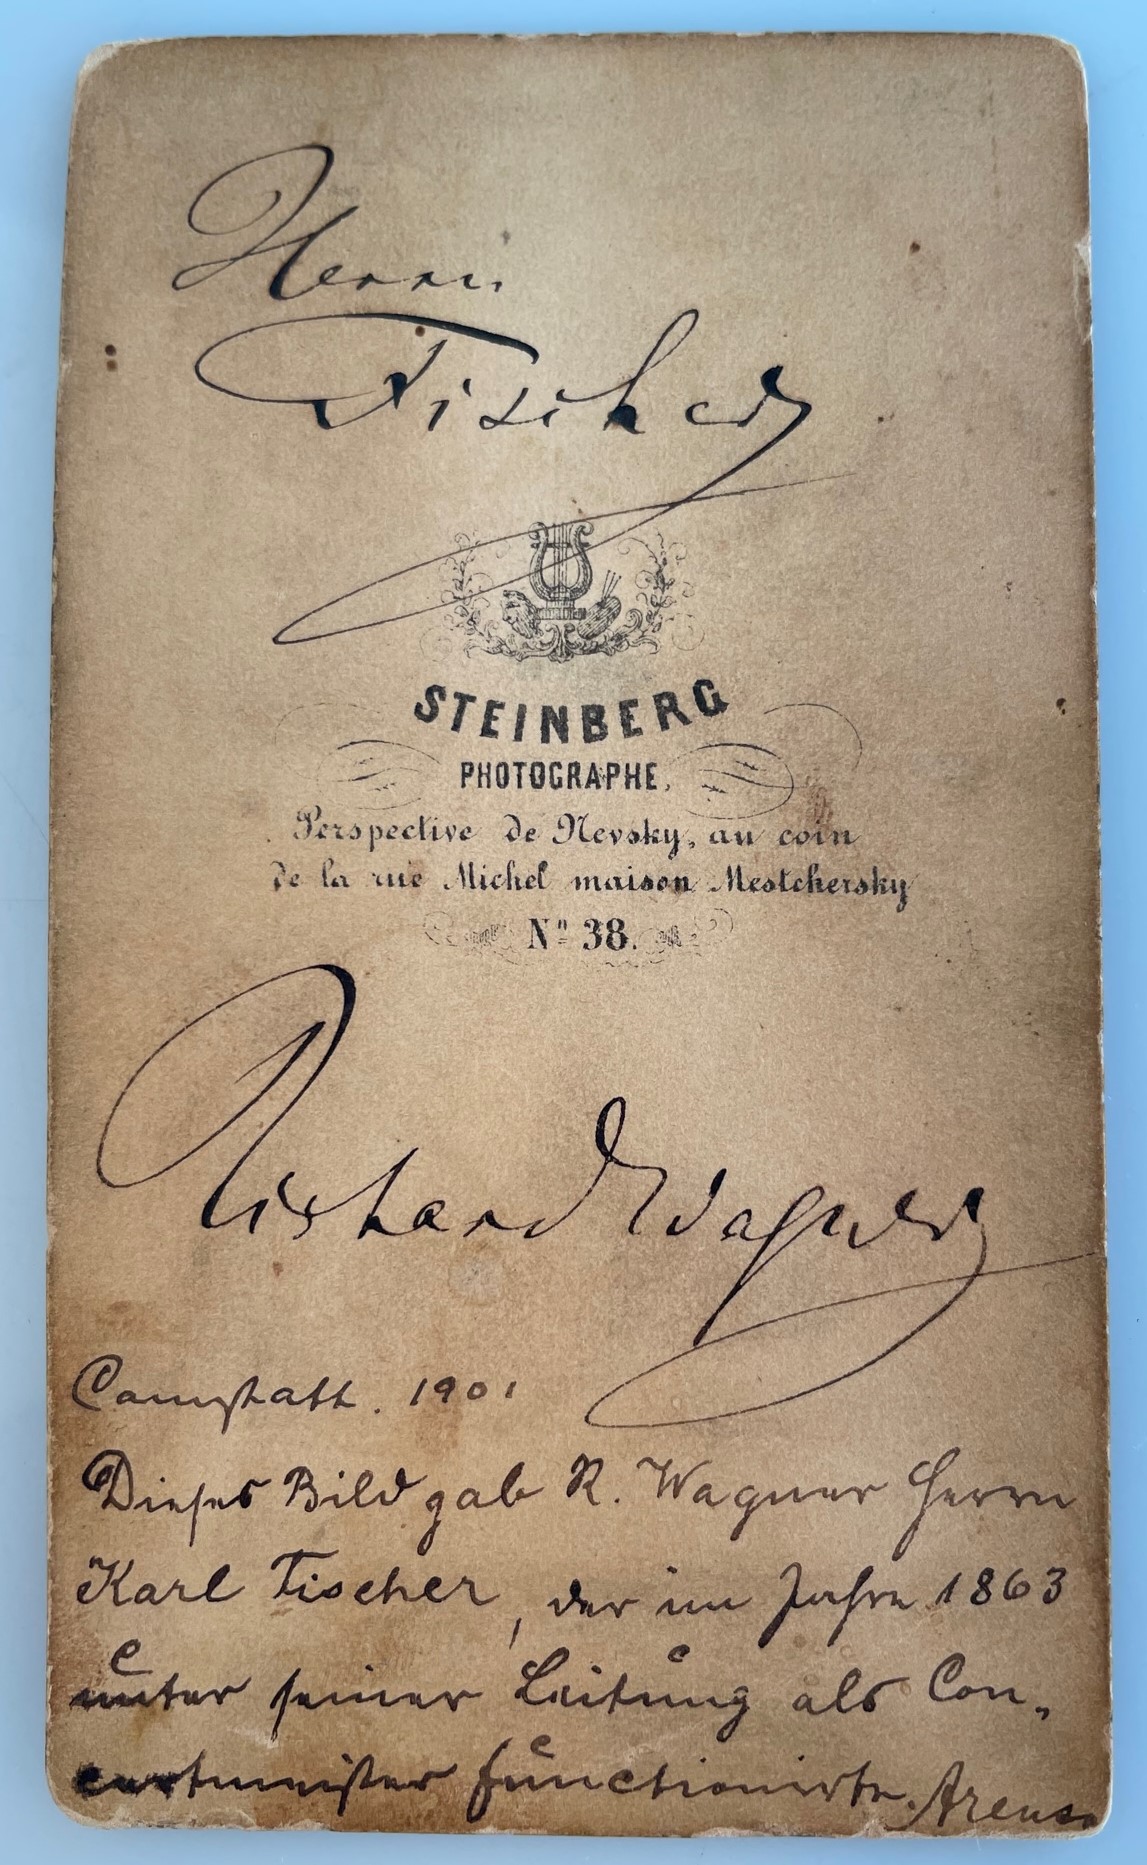 Herrn
Fischer
STEINBERG
PHOTOGRAPHE,
Perspective de Nevsky, au coin
de la rue Michel maison Mestchersky
Nº 38.
Richard Wagner
Cannstatt. 1901
Dieses Bild gab R. Wagner Herrn
Karl Fischer, der im Jahre 1863
unter seiner Leitung als Con-
certmeister functionirte.